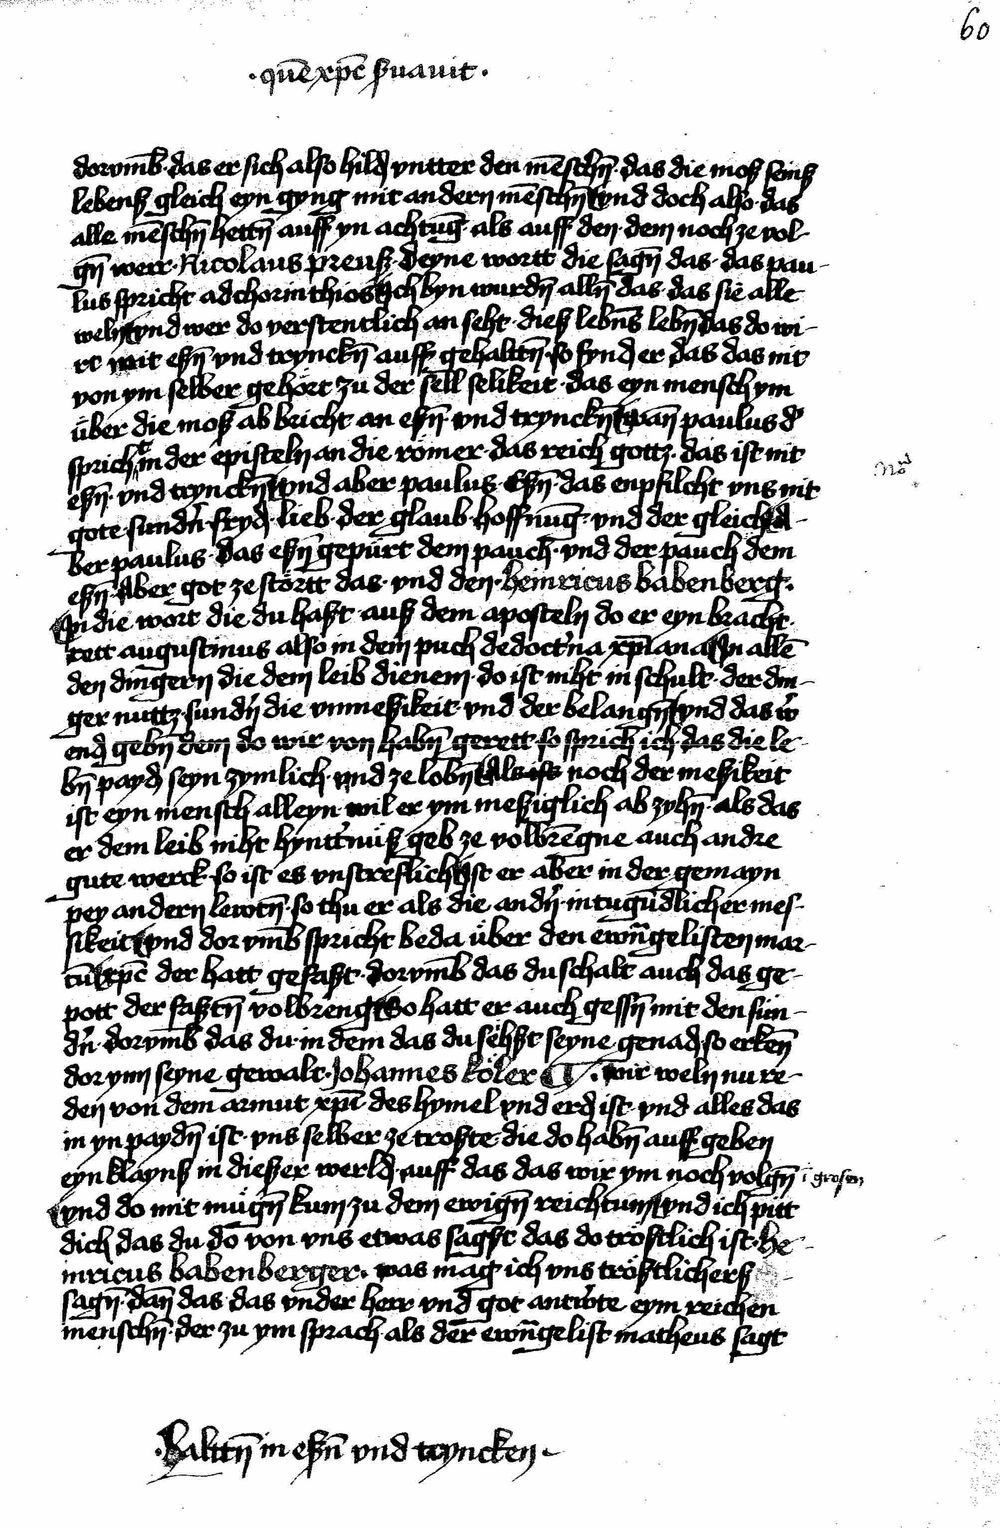 60
· que̅ xp̅c s̅uauit ·
dorvmb̅ · das er sich also hild vntter den me̅sche̅ · das die moß seinß
lebenß gleich eyn gyng mit andern me̅sche̅ vnd doch also · das
alle me̅sche̅ hette̅ auff yn achtu̅g · als auff den · dem noch ze vol-
ge̅ werr · Nicolaus preuß · Deyne wortt die sage̅ das · das pau-
lus spricht ad chorinthios ich byn wurde̅ alle̅ das · das sie alle
weln vnd wer do verstentlich an seht · dieß lebe̅s lebe̅ das do wi-
rt mit eße̅ vnd tryncke̅ auff gehaltte̅ · so fynd er das das nit
von ym selber gehört zu der sell selikeit · das eyn mensch ym
über die moß ab bricht an eße̅ · vnd tryncke̅ wa̅n paulus d'
spricht in der episteln an die römer · das reich gottz · das ist nit
eße̅ · vnd tryncke̅ vnd aber paulus · Eße̅ · das enpfilcht vns nit
gote · sund'n · fryd · lieb · der glaub hoffnu̅g · vnd der gleich a-
ber paulus · das eße̅ gepürt dem pauch · vnd der pauch dem
eße̅ · Aber got ze störtt das · vnd den · heinricus babenberg ·
In die wort die du hast · auß dem aposteln do er eyn bracht ·
rett augustinus also in dem puch de doct'na xp̅iana In alle̅
den dingern die dem leib dienem · do ist niht in schult · der din-
ger nuttz · sund'n die vnmeßikeit · vnd der belange̅ vnd das w'
end gebe̅ dem do wir von habe̅ gerett · so sprich ich das die le-
be̅ payd seyn zymlich · vnd ze lobe̅ als ist noch der meßikeit
ist eyn mensch alleyn · wil er ym meßiglich ab zyhe̅ · als das
er dem leib niht hyntt'nuß geb ze volbre̅gne auch andre
gute werck · so ist es vnstreflich Ist er aber in der gemayn
pey andern lewte̅ · so thu er als die and'n · in tuge̅dlicher mes-
sikeit vnd dor vmb̅ spricht beda über den ewa̅ngelisten mar-
cu̅ xp̅c der hatt gefast · dorvmb̅ das du schalt auch das ge-
pott der faste̅ volbrenge So hatt er auch gesse̅ mit den sün-
d'n · dorvmb̅ das du · in dem das du sehst seyne genad · so erken̅
dor ynn seyne gewalt · Johannes köler · wir weln nu re-
den von dem armut xp̅i des hymel vnd erd ist · vnd alles das
in yn payde̅ ist · vns selber ze troste · die do habe̅ auff geben
eyn klaynß in dießer werld · auff das das wir ym noch volge̅ i̅ grosen
vnd do mit müge̅ kum zu dem ewige̅ reichtum vnd ich pitt
dich das du do von vns etwas sagst das do tröstlich ist · He-
inricus babenberger · was mag ich vns tröstlicherß
sage̅ · dan̅ das · das vnder herr vnd got antw'te eym reichen
mensche̅ · der zu ym sprach als der ewa̅ngelist matheus sagt
· haltte̅ in eße̅ vnd tryncken ·